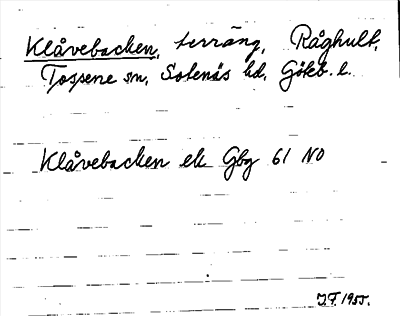 Klåvebacken, terräng, Råghult,
Tossene sn, Sotenäs hd, Göteb. l.
Klåvebacken ek Gbg 61 NO
J.F. 1955.